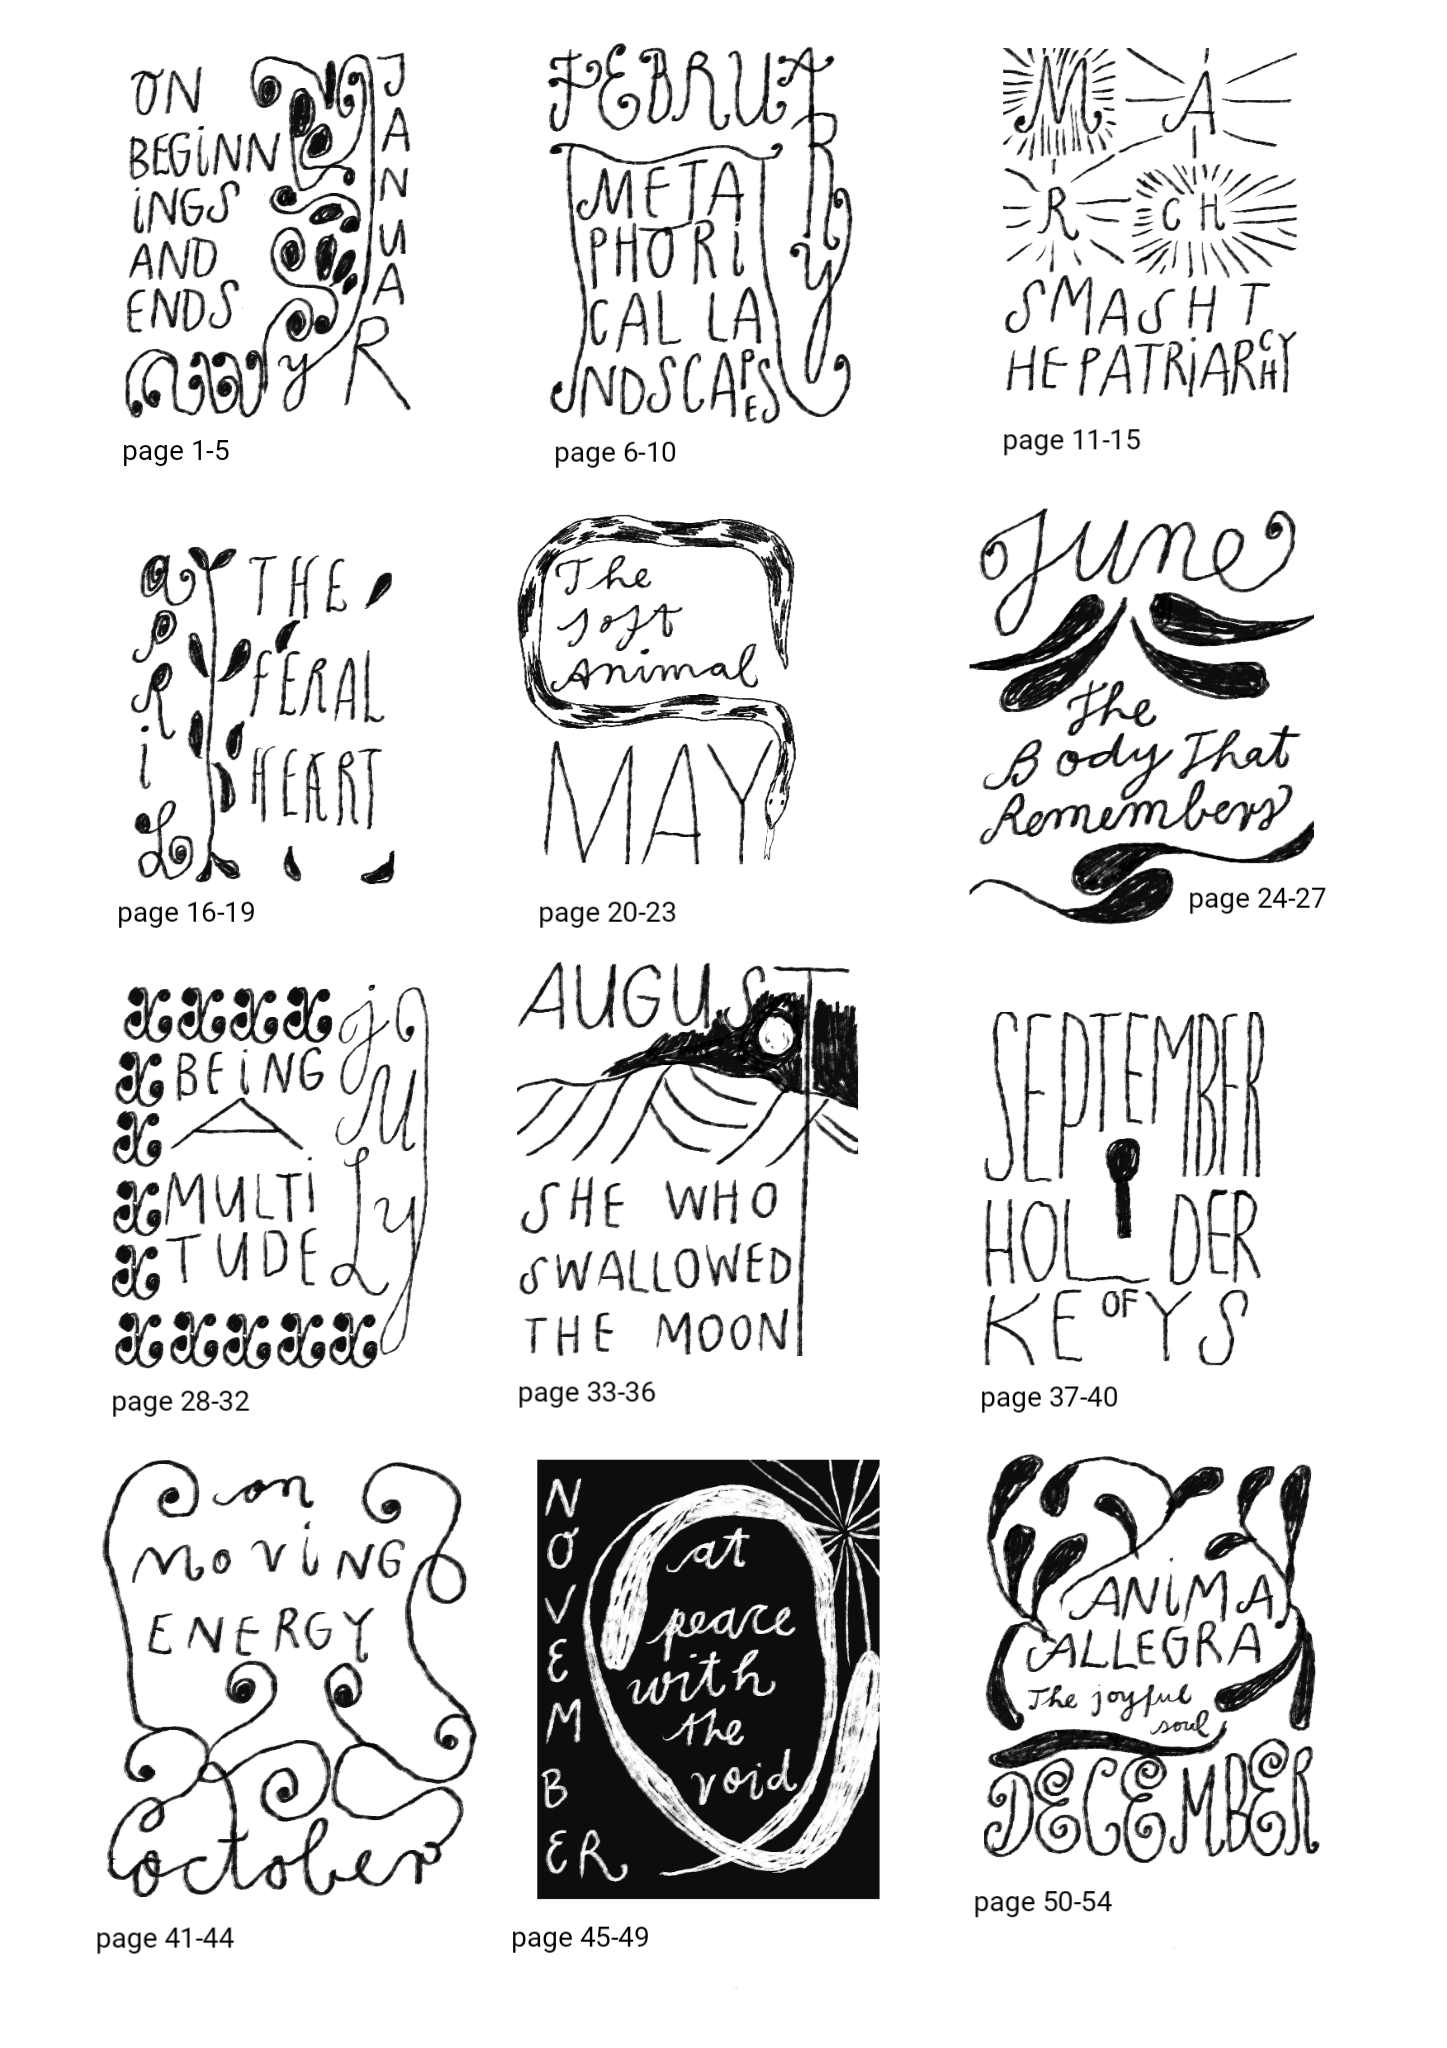 ON
BEGiNN
iNGS
AND
ENDS
JANUARy
page 1-5
FEBRUARy
META
PHORi
CAL LA
NDSCAPES
page 6-10
M A
R CH
SMASH T
HE PATRiARCHY
page 11-15
apRiL
THE
FERAL
HEART
page 16-19
The
Soft
Animal
MAY
page 20-23
June
The
Body That
Remembers
page 24-27
juLy
BEiNG
A
MULTi
TUDE
page 28-32
AUGUST
SHE WHO
SWALLOWED
THE MOON
page 33-36
SEPTEMBER
HOLDER
OF
KEYS
page 37-40
on
MOViNG
ENERGY
october
page 41-44
NOVEMBER
at
peace
with
the
void
page 45-49
ANiMA
ALLEGRA
The joyful
soul
DECEMBER
page 50-54